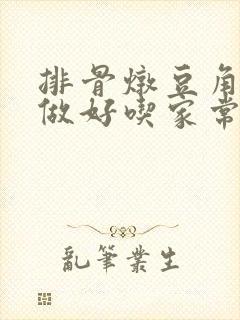 排骨燉豆角
做好喫家常
亂筆業生